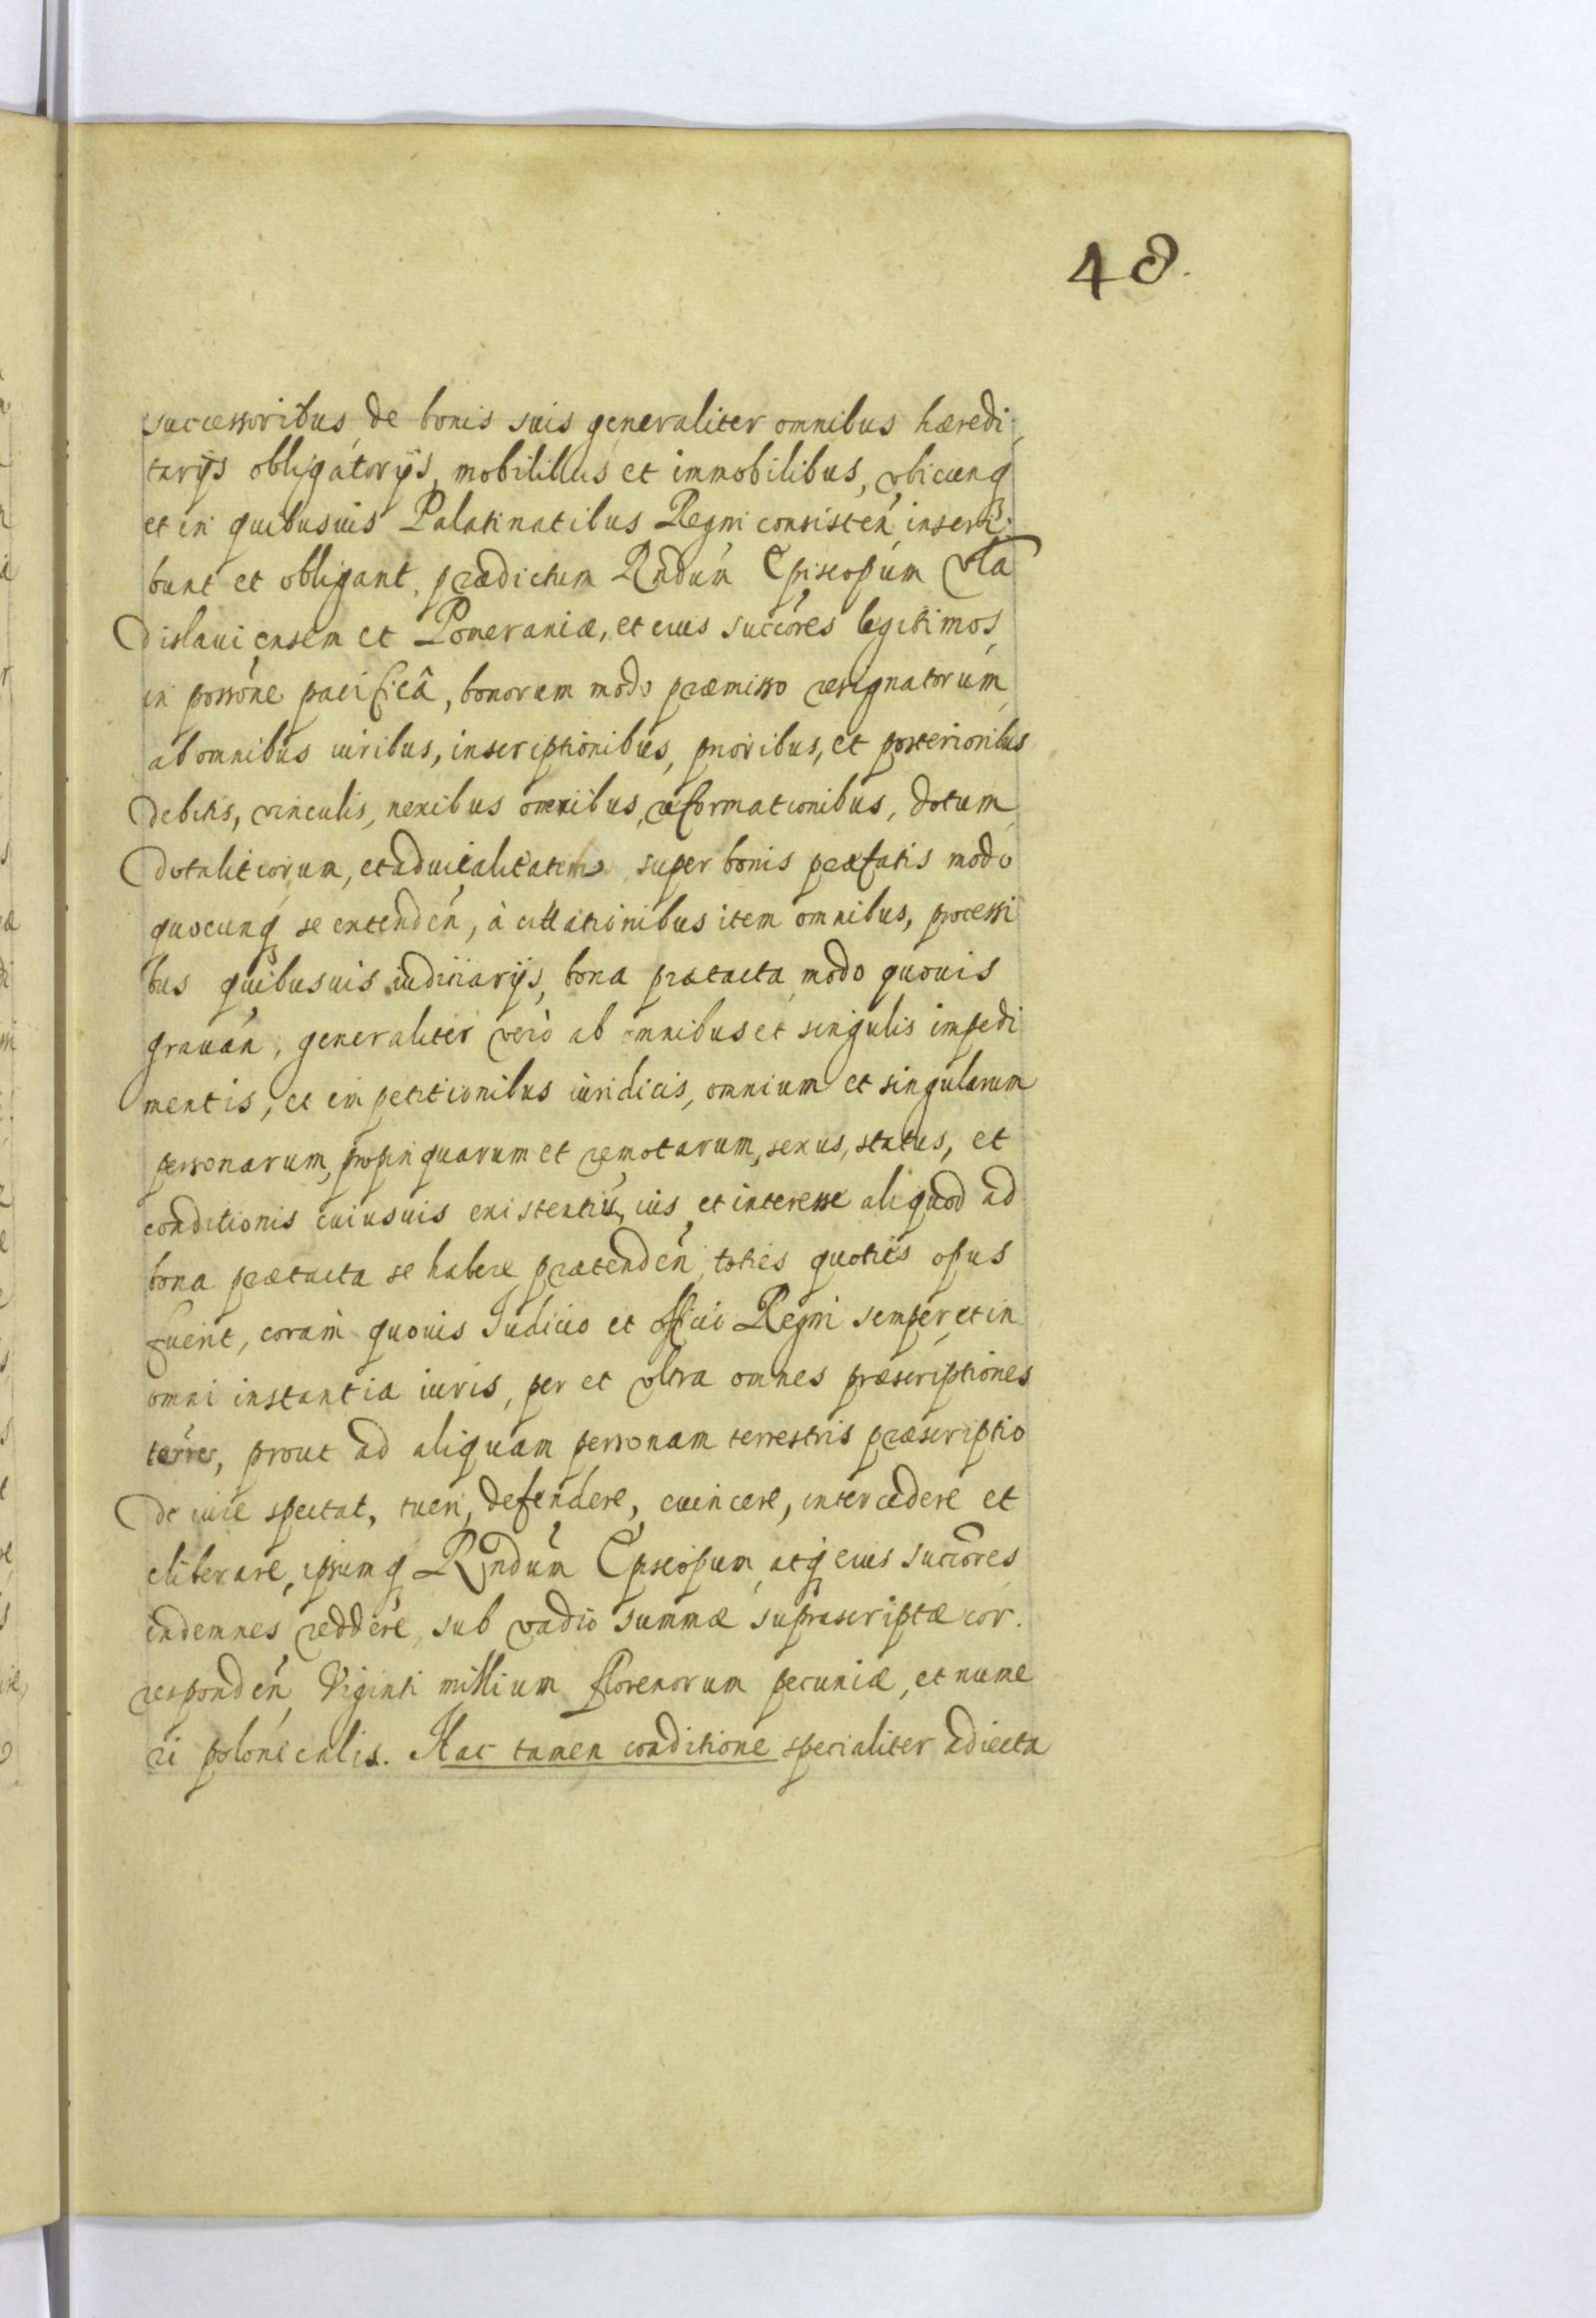 48.
successoribus, de bonis suis generaliter omnibus hæredi
tarijs obligatorijs, mobilibus et immobilibus, vbicunq
et in quibusuis Palatinatibus Regni consisten, inscri
bunt et obligant, prædictum Rndum Episcopum Vla
dislauiensem et Pomeraniæ, et eius succōres legitimos,
in possōne pacificâ, bonorum modo præmisso resignatorum,
ab omnibus iuribus, inscriptionibus, prioribus, et posterioribus
debitis, vinculis, nexibus omnibus, reformationibus, dotum,
dotalitiorum, et aduitalitatem, super bonis præfatis modo
quocunq se extenden, à citationibus item omnibus, processi
bus quibusuis iudiciarijs, bona prætacta modo quouis
grauan, generaliter verò ab omnibus et singulis impedi
mentis, et impetitionibus iuridicis, omnium et singularum
personarum, propinquarum et remotarum, sexus, status, et
conditionis cuiusuis existentiū, ius, et interesse aliquod ad
bona prætacta se habere prætenden, toties quoties opus
fuerit, coram quouis Iudicio et officio Regni semper, et in
omni instantia iuris, per et vltra omnes præscriptiones
terres, prout ad aliquam personam terrestris præscriptio
de iure spectat, tueri, defendere, euincere, intercedere et
eliberare, ipsumq Rndum Episcopum, atq eius succōres
indemnes reddere, sub vadio summæ suprascriptæ cor.
responden, Viginti millium florenorum pecuniæ, et nume
ri polonicalis. Hac tamen conditione specialiter adiecta